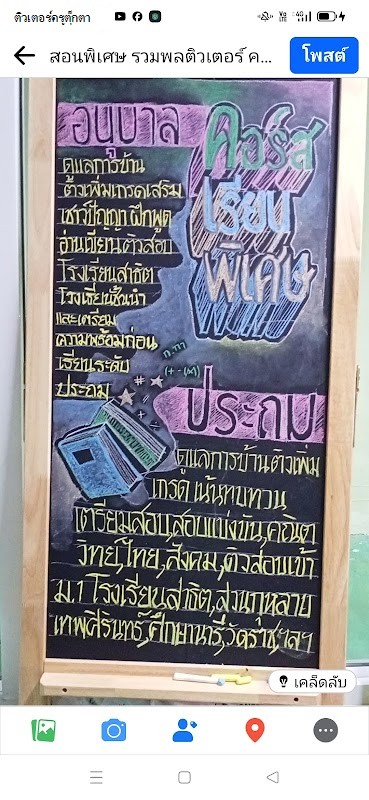 ติวเตอร์ครูตุ๊กตา
สอนพิเศษ รวมพลติวเตอร์ ค...
โพสต์
อนุบาล
คอร์ส
เรียน
พิเศษ
ดูแลการบ้าน
ติวเพิ่มเกรดเสริม
เชาว์ปัญญา ฝึกพูด
อ่านเขียน ติวสอบ
โรงเรียนสาธิต
โรงเรียนชั้นนำ
และเตรียม
ความพร้อมก่อน
เรียนระดับ
ประถม
ประถม
ดูแลการบ้าน ติวเพิ่ม
เกรด เน้นทบทวน
เตรียมสอบ,สอบแข่งขัน,คณิต
วิทย์,ไทย,สังคม,ติวสอบเข้า
ม.1 โรงเรียนสาธิต,สวนกุหลาบ
เทพศิรินทร์,ศึกษานารี,วัดราชาฯ
เคล็ดลับ